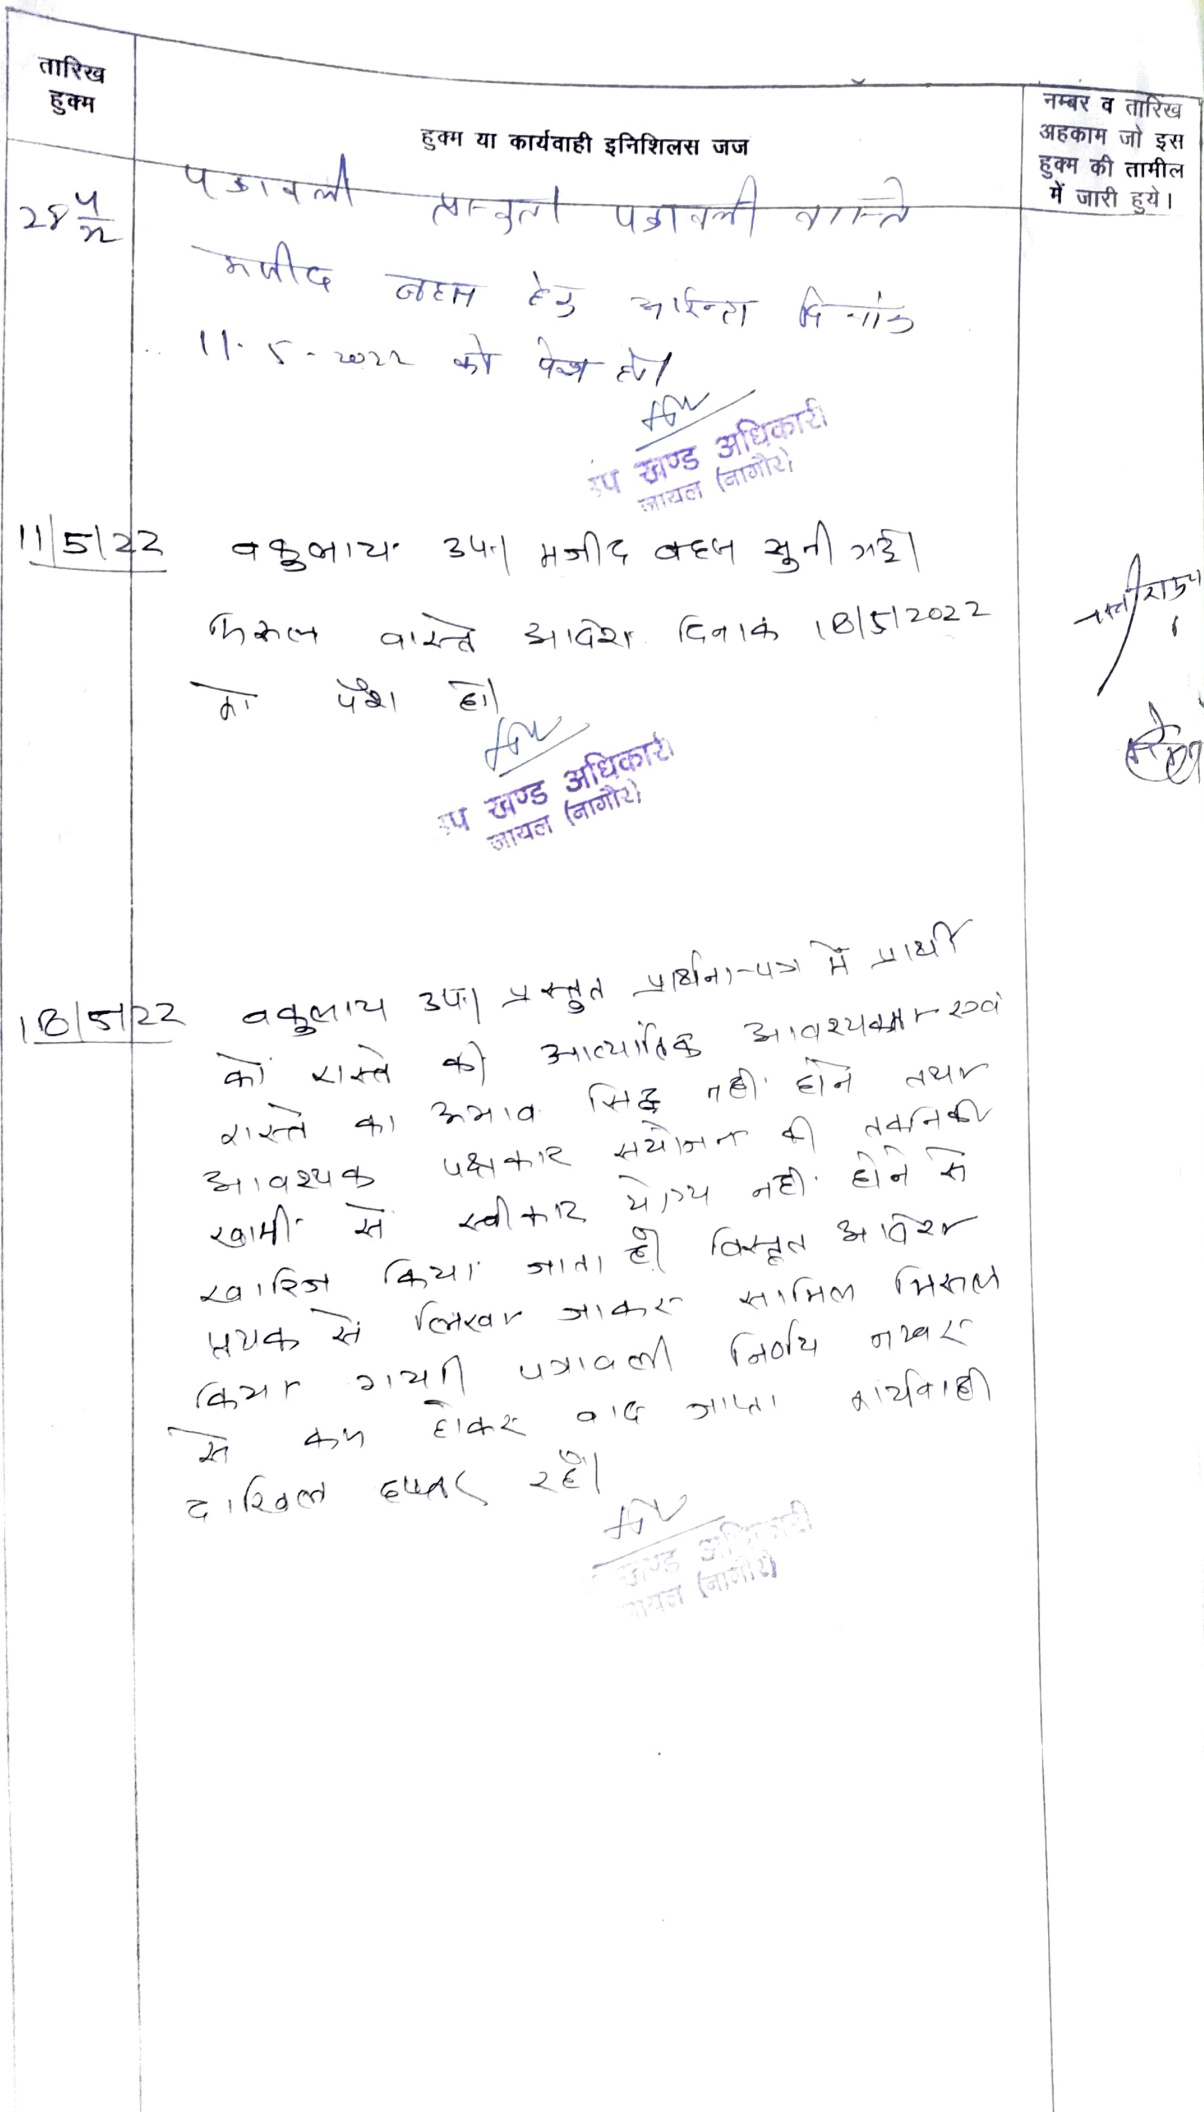 तारिख
हुक्म
हुक्म या कार्यवाही इनिशिलस जज
नम्बर व तारिख
अहकाम जो इस
हुक्म की तामील
में जारी हुये।
28 4/22
पत्रावली प्रस्तुत। पत्रावली वास्ते
मजीद बहस हेतु आईन्दा दिनांक
11-5-2022 को पेश हो।
उप खण्ड अधिकारी
जायल (नागौर)
11/5/22
वकुलाय उप.। मजीद बहस सुनी गई।
मिसल वास्ते आदेश दिनांक 18/5/2022
को पेश हो।
उप खण्ड अधिकारी
जायल (नागौर)
18/5/22
वकुलाय उप.। प्रस्तुत प्रार्थना-पत्र में प्रार्थी
को रास्ते की आत्यांतिक आवश्यकता एवं
रास्ते का अभाव सिद्ध नहीं होने तथा
आवश्यक पक्षकार संयोजन की तकनिकी
खामी से स्वीकार योग्य नहीं होने से
खारिज किया जाता है। विस्तृत आदेश
पृथक से लिखा जाकर सामिल मिसल
किया गया। पत्रावली निर्णय नम्बर
से कम होकर बाद जाप्ता कार्यवाही
दाखिल दफ्तर रहें।
खण्ड अधिकारी
जायल (नागौर)